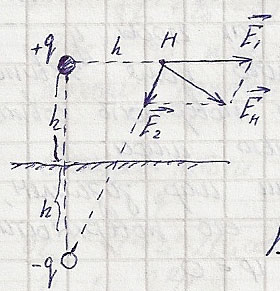 +q h H E₁
h E₂ E_H
h
-q